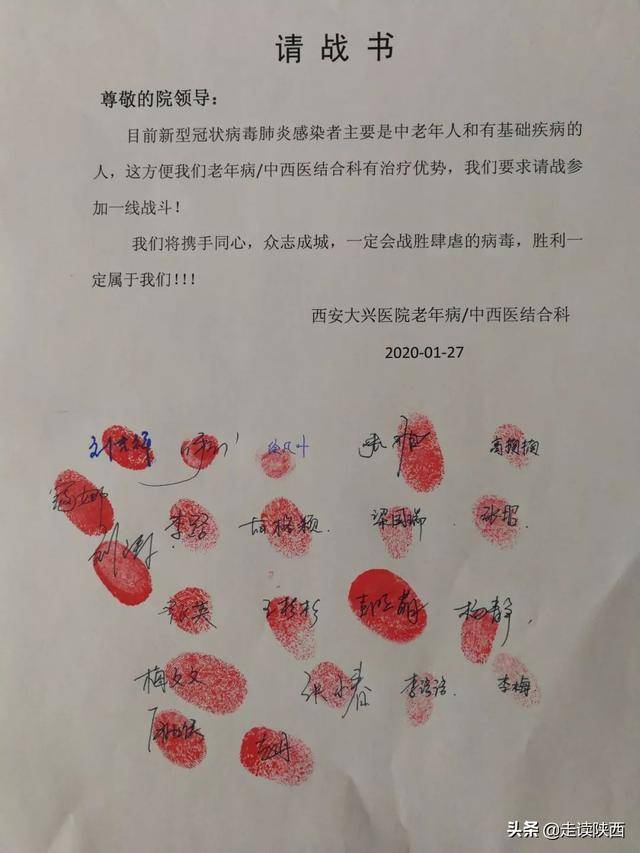 请战书
尊敬的院领导：
目前新型冠状病毒肺炎感染者主要是中老年人和有基础疾病的
人，这方便我们老年病/中西医结合科有治疗优势，我们要求请战参
加一线战斗！
我们将携手同心，众志成城，一定会战胜肆虐的病毒，胜利一
定属于我们!!!
西安大兴医院老年病/中西医结合科
2020-01-27
徐凤叶 高楠楠
寇娜 李璐 胡格颖 梁国瑞
王杉杉 杨静
梅文文 张小春 李洛洛 李梅
头条 @走读陕西